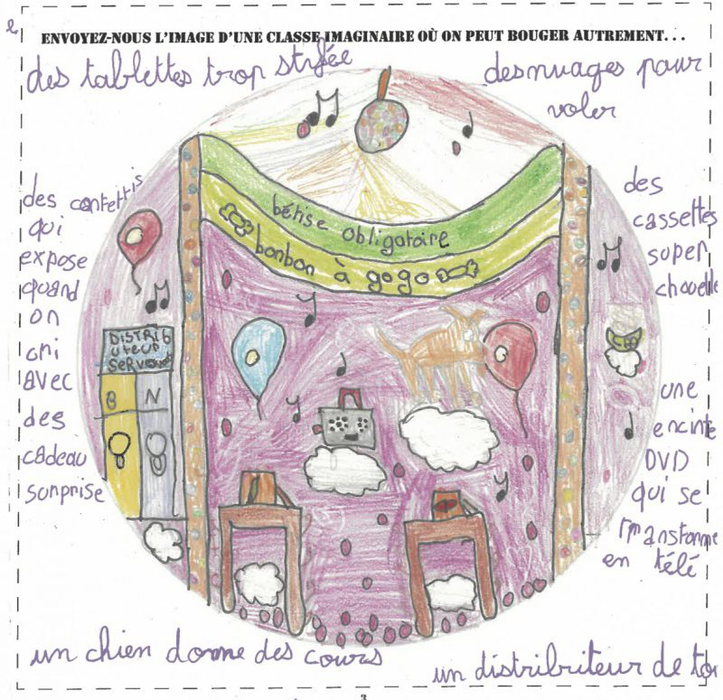 ENVOYEZ-NOUS L'IMAGE D'UNE CLASSE IMAGINAIRE OÙ ON PEUT BOUGER AUTREMENT...
des tablettes trop stylée
des nuages pour
voler
des confettis
qui
expose
quand
on
cri
avec
des
cadeau
surprise
bêtise obligatoire
bonbon à gogo
DISTRIB
uteur
SERVEUR
B N
des
cassettes
super
chouette
une
encinte
DVD
qui se
transforme
en télé
un chien donne des cours
un distribiteur de to
3